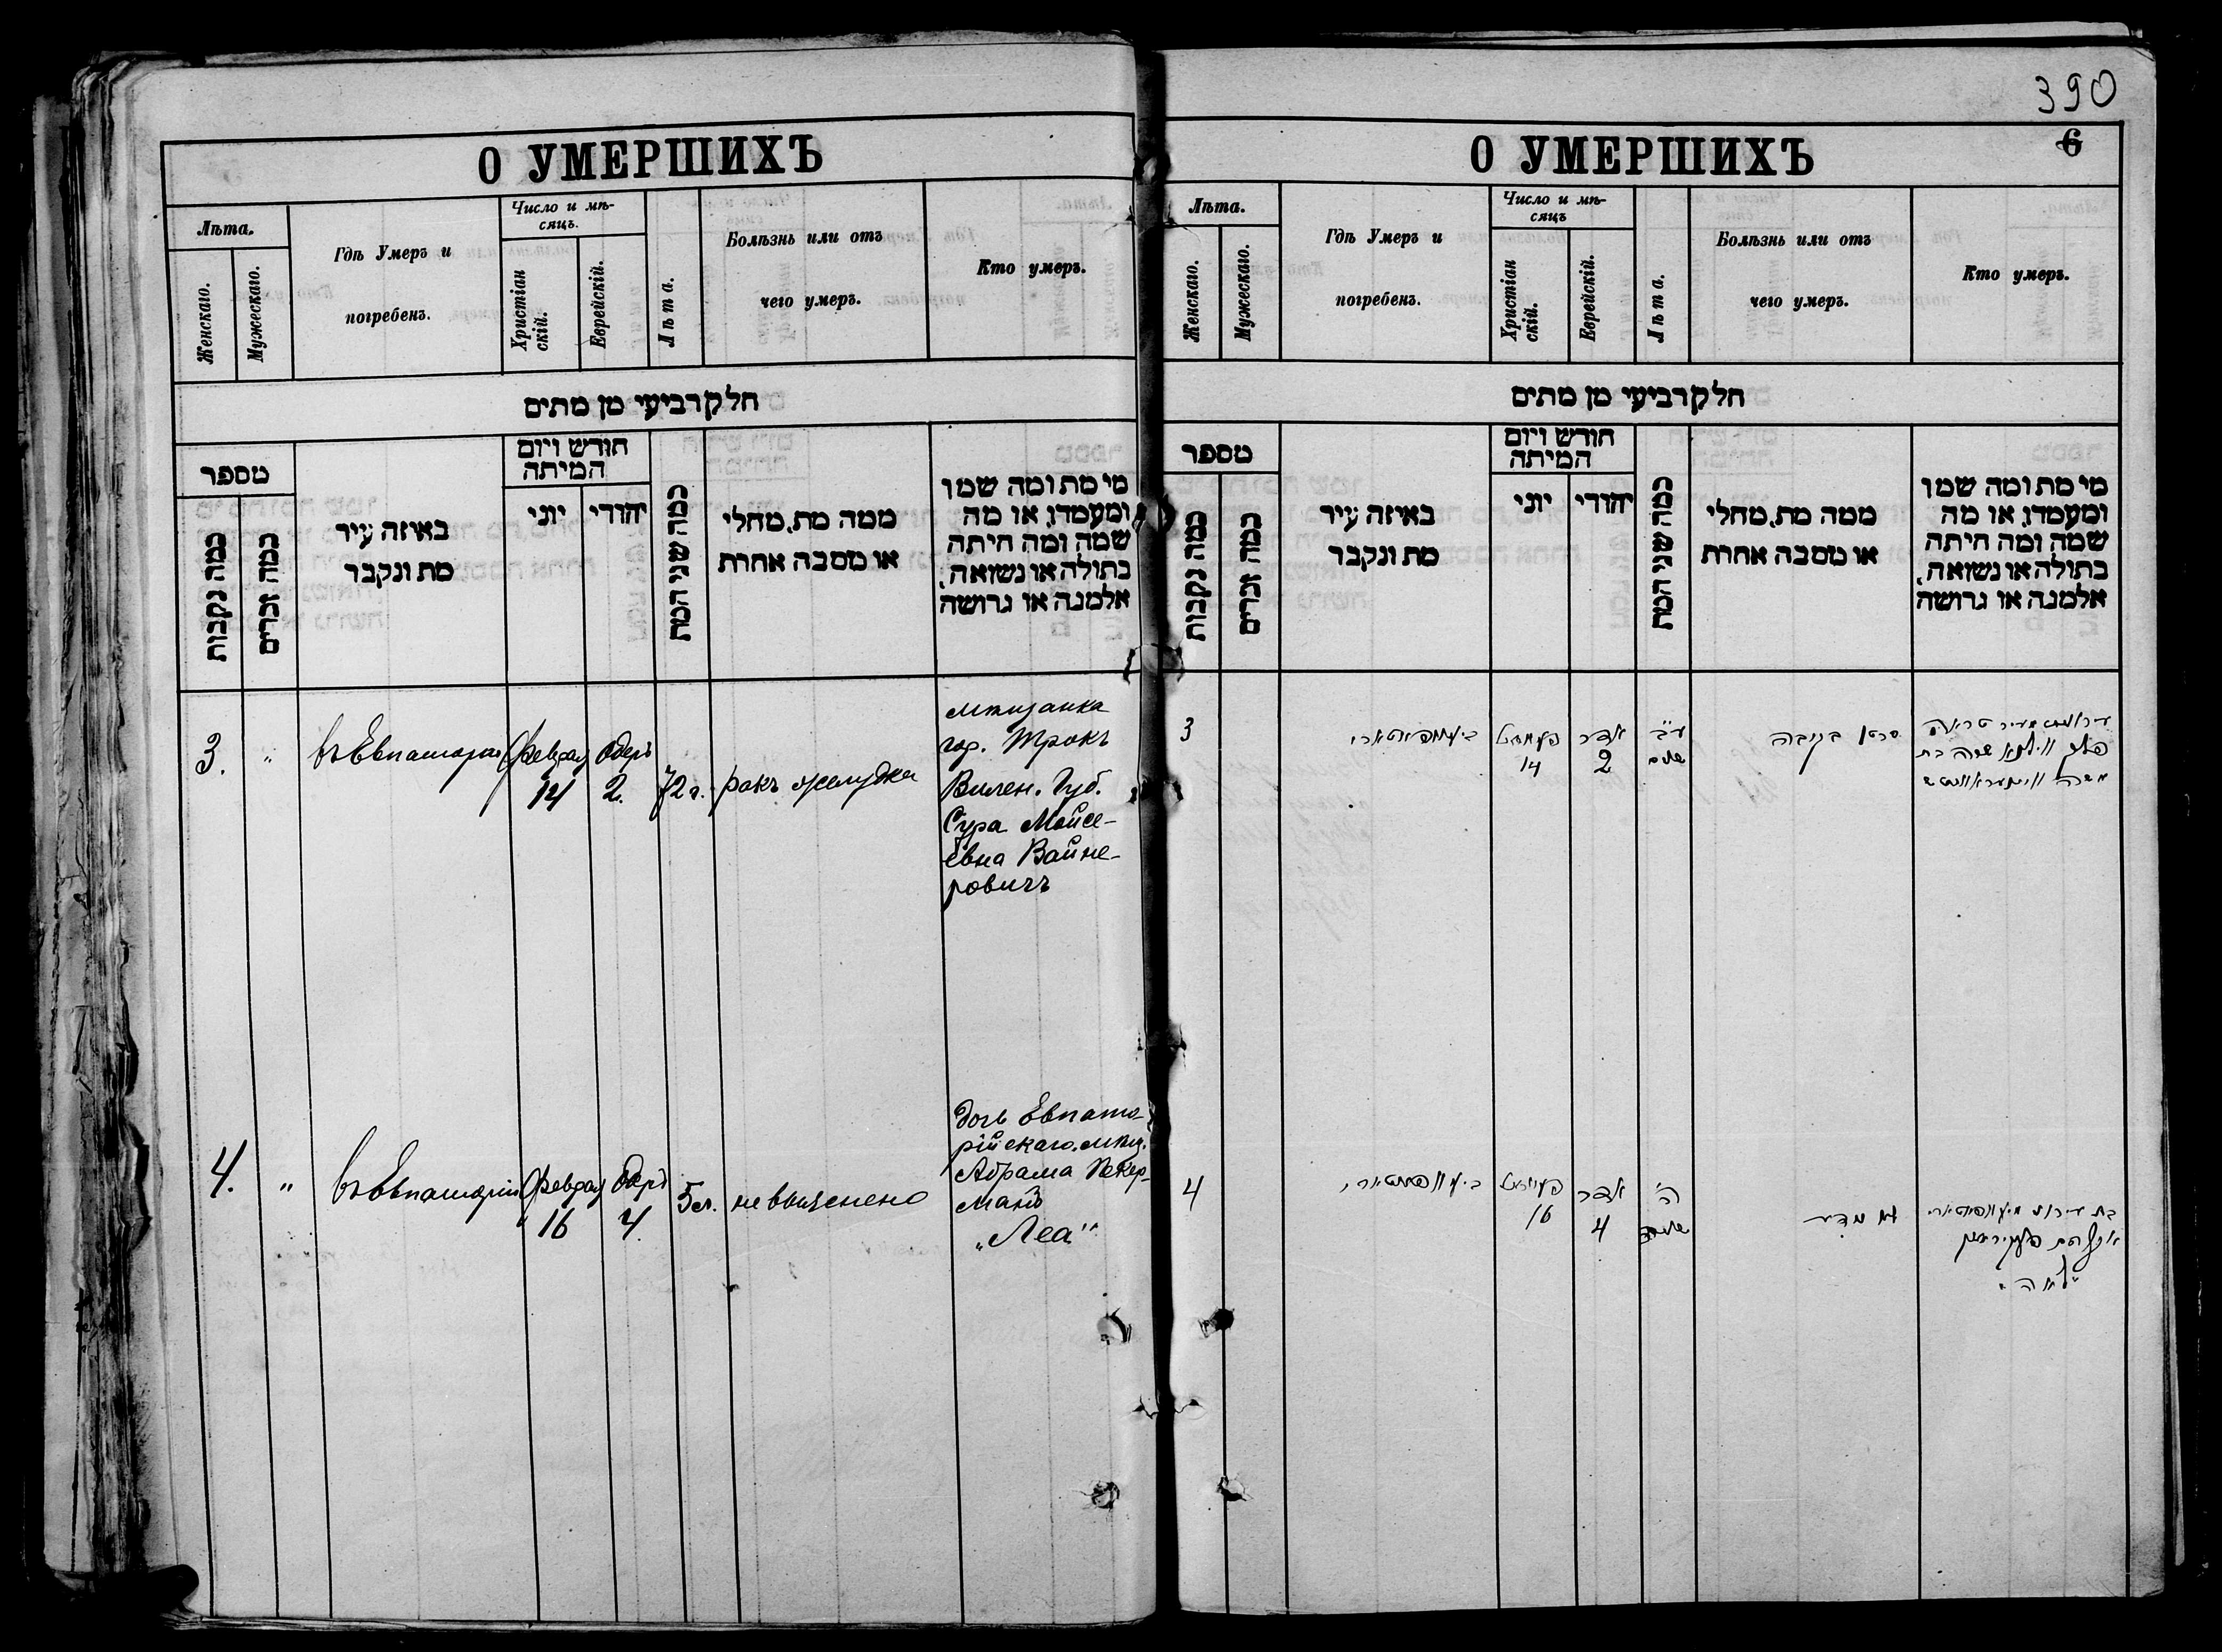 390
О УМЕРШИХЪ
Лѣта.
Женскаго.
Мужескаго.
Гдѣ Умеръ и
погребенъ.
Число и мѣ-
сяцъ.
Христіан
скій.
Еврейскій.
Лѣта.
Болѣзнь или отъ
чего умеръ.
Кто умеръ.
חלק רביעי מן מתים
מספר
כמה נקבות
כמה זכרים
באיזה עיר
מת ונקבר
חודש ויום
המיתה
יוני
יהודי
כמה שני המת
ממה מת, מחלי
או מסבה אחרת
מי מת ומה שמו
ומעמדו, או מה
שמה ומה היתה
בתולה או נשואה,
אלמנה או גרושה
3.
"
въ Евпаторіи
Феврал
14
Одеръ
2.
72 г.
ракъ желудка
мѣщанка
гор. Трокъ
Вилен. Губ.
Сура Мойсе-
евна Вайне-
ровичъ
4.
"
въ Евпаторіи
Феврал
16
Одеръ
4.
5 л.
не выяснено
дочь Евпато-
рійскаго мѣщ.
Абрама Пекер-
мана
„Леа"
О УМЕРШИХЪ
6
Лѣта.
Женскаго.
Мужескаго.
Гдѣ Умеръ и
погребенъ.
Число и мѣ-
сяцъ
Христіан
скій.
Еврейскій.
Лѣта.
Болѣзнь или отъ
чего умеръ.
Кто умеръ.
חלק רביעי מן מתים
מספר
כמה נקבות
כמה זכרים
באיזה עיר
מת ונקבר
חודש ויום
המיתה
יוני
יהודי
כמה שני המת
ממה מת, מחלי
או מסבה אחרת
מי מת ומה שמו
ומעמדו, או מה
שמה ומה היתה
בתולה או נשואה,
אלמנה או גרושה
3
14
אדר
2
ע״ב
שנים
סרטן בקיבה
פלך ווילנא שרה בת
משה
4
16
אדר
4
ה׳
שנים
לא נודע
"לאה"